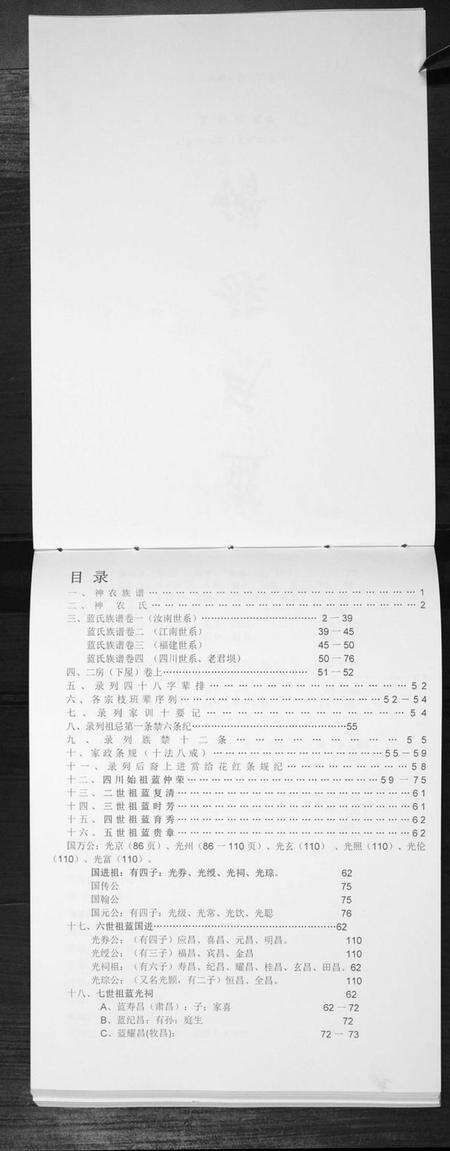 目 录
一、神农族谱………………………………………………1
二、神 农 氏………………………………………………2
三、蓝氏族谱卷一（汝南世系）………………………………2－39
蓝氏族谱卷二（江南世系） 39－45
蓝氏族谱卷三（福建世系） 45－50
蓝氏族谱卷四（四川世系、老君坝） 50－76
四、二房（下屋）卷上………………………………………51－52
五、录列四十八字辈排………………………………………52
六、各宗枝班辈序列………………………………………52－54
七、录列家训十要记………………………………………54
八、录列祖忌第一条禁六条纪………………………………………55
九、录列族禁十二条………………………………………55
十、家政条规（十法八戒）………………………………55－59
十一、录列后裔上进赏给花红条规纪………………………58
十二、四川始祖蓝仲荣………………………………59－75
十三、二世祖蓝复清………………………………………61
十四、三世祖蓝时芳………………………………………61
十五、四世祖蓝育秀………………………………………62
十六、五世祖蓝贵章………………………………………62
国万公：光京（86页）、光州（86－110页）、光玄（110）、光照（110）、光伦
（110）、光富（110）、
国进祖：有四子：光券、光绶、光祠、光琮。 62
国传公 75
国翰公 75
国元公：有四子：光级、光常、光饮、光聪 76
十七、六世祖蓝国进………………………………………62
光券公：（有四子）应昌、喜昌、元昌、明昌。 110
光绶公：（有三子）福昌、宾昌、金昌 110
光祠祖：（有六子）寿昌、纪昌、耀昌、桂昌、玄昌、田昌。62
光琮公：（又名光颐，有二子）恒昌、全昌。 110
十八、七世祖蓝光祠 62
A、蓝寿昌（肃昌）：子：家喜 62－72
B、蓝纪昌：有孙：庭生 72
C、蓝耀昌(牧昌)： 72－73